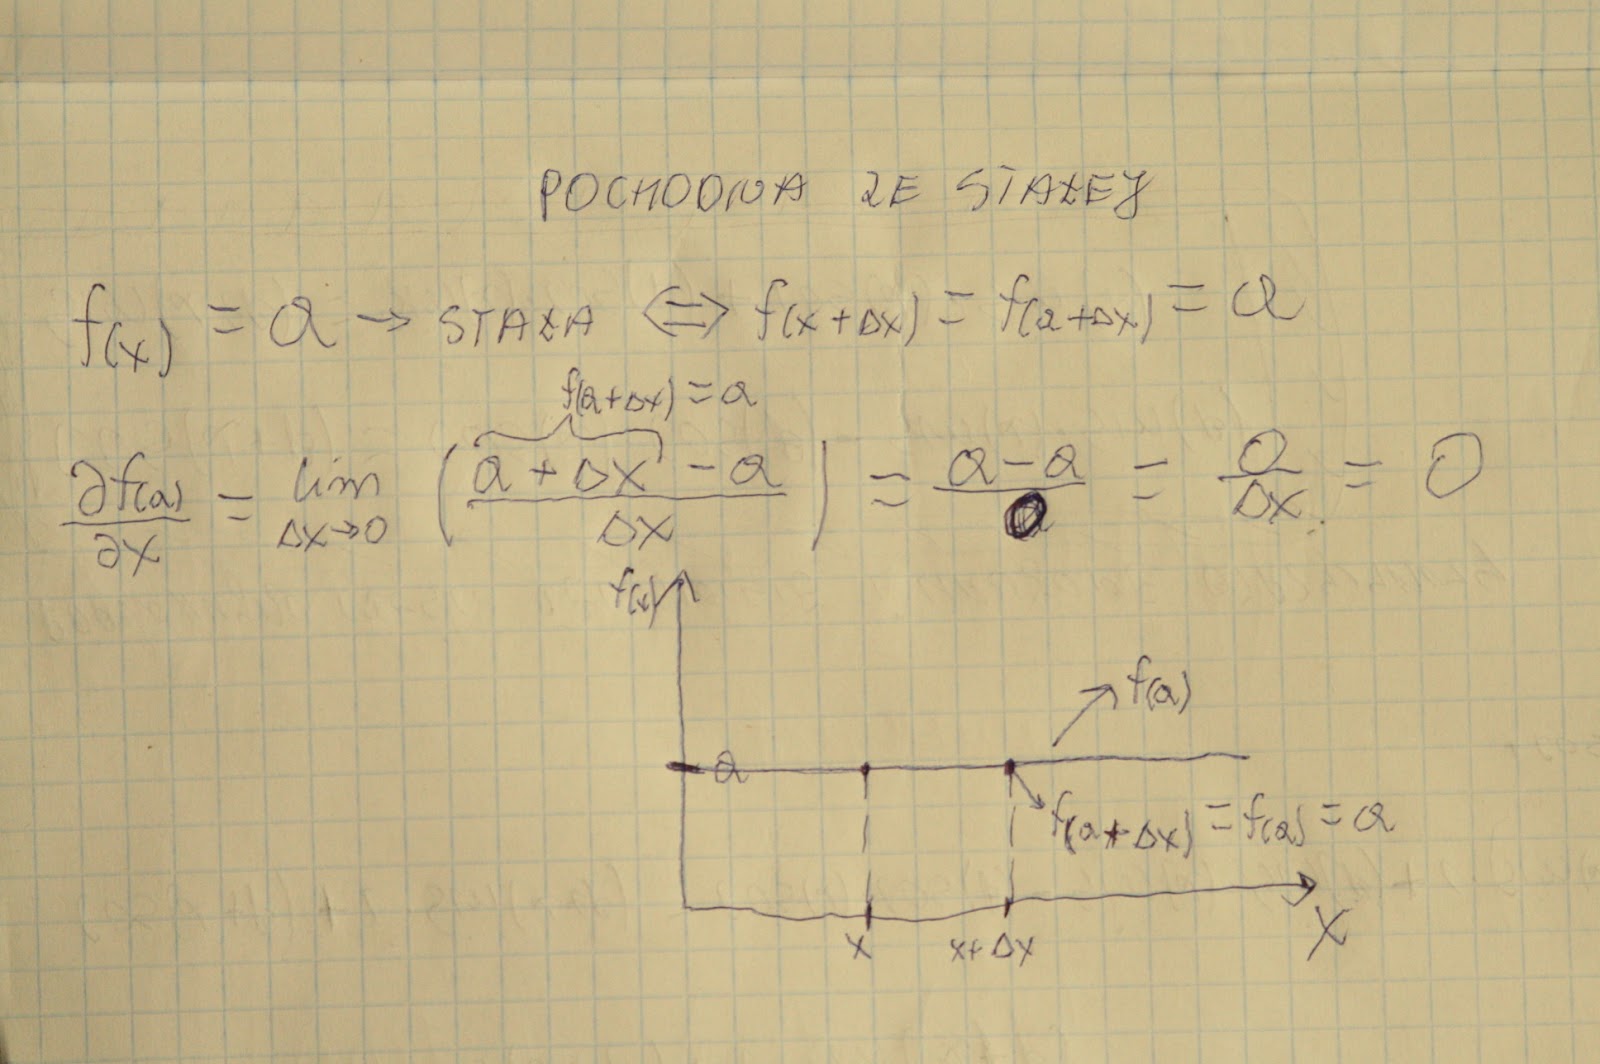 POCHODNA ZE STAŁEJ
f(x) = a → STAŁA ⇔ f(x+Δx) = f(a+Δx) = a
f(a+Δx) = a
∂f(a)/∂x = lim Δx→0 ( (a + Δx - a)/Δx ) = (a - a)/ = 0/Δx = 0
f(x)
f(a)
a
f(a+Δx) = f(a) = a
x x+Δx X